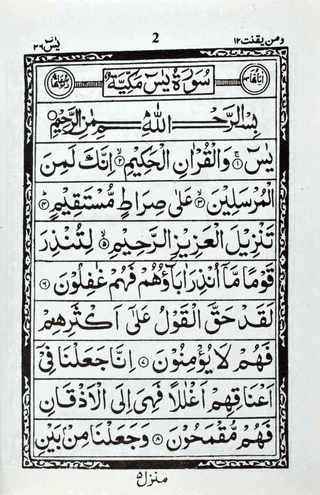 ومن يقنت ٢٢ 2 يٰسٓ ٣٦
سُوْرَةُ يٰسٓ مَكِّيَّةٌ
بِسْمِ اللّٰهِ الرَّحْمٰنِ الرَّحِيْمِ
يٰسٓ ۝١ وَالْقُرْاٰنِ الْحَكِيْمِ ۝٢ اِنَّكَ لَمِنَ
الْمُرْسَلِيْنَ ۝٣ عَلٰى صِرَاطٍ مُّسْتَقِيْمٍ ۝٤
تَنْزِيْلَ الْعَزِيْزِ الرَّحِيْمِ ۝٥ لِتُنْذِرَ
قَوْمًا مَّاۤ اُنْذِرَ اٰبَآؤُهُمْ فَهُمْ غٰفِلُوْنَ ۝٦
لَقَدْ حَقَّ الْقَوْلُ عَلٰۤى اَكْثَرِهِمْ
فَهُمْ لَا يُؤْمِنُوْنَ ۝٧ اِنَّا جَعَلْنَا فِيْۤ
اَعْنَاقِهِمْ اَغْلٰلًا فَهِيَ اِلَى الْاَذْقَانِ
فَهُمْ مُّقْمَحُوْنَ ۝٨ وَجَعَلْنَا مِنْۢ بَيْنِ
منزل ٥